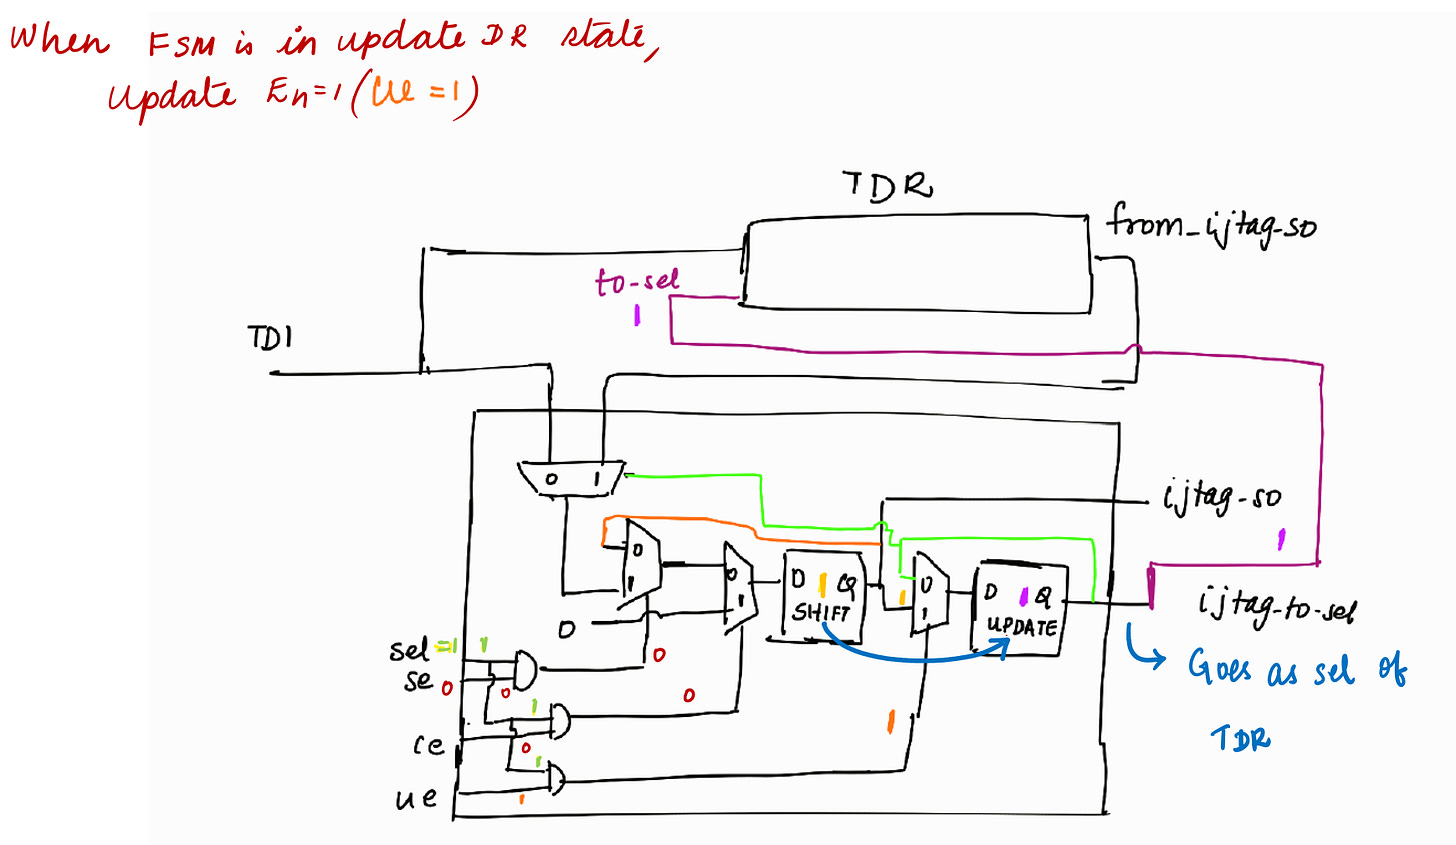 When FSM is in update DR state,
Update En=1 (Ue =1)
TDR
from_ijtag-so
to-sel
1
TDI
0 1
ijtag-so
0
1
0
1
D 1 Q
SHIFT
1
0
1
D 1 Q
UPDATE
1
ijtag-to-sel
0
sel =1 1
se 0 0
0
Goes as sel of
TDR
1
0
1
ce
0
1
ue
1